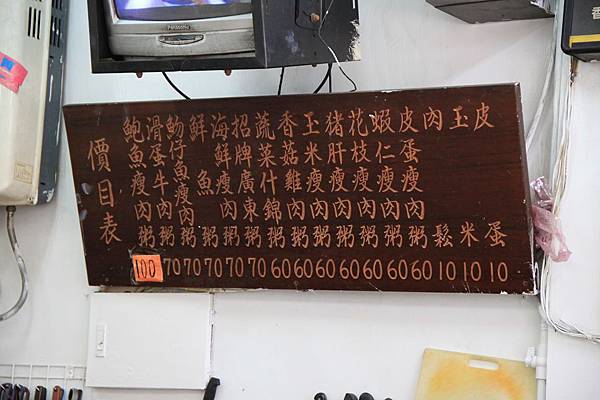 Panasonic
香
價目表
鮑魚瘦肉粥 100
滑蛋牛肉粥 70
魩仔魚瘦肉粥 70
鮮魚粥 70
海鮮瘦肉粥 70
招牌廣東粥 70
蔬菜什錦粥 60
香菇雞肉粥 60
玉米瘦肉粥 60
猪肝瘦肉粥 60
花枝瘦肉粥 60
蝦仁瘦肉粥 60
皮蛋瘦肉粥 60
肉鬆 10
玉米 10
皮蛋 10